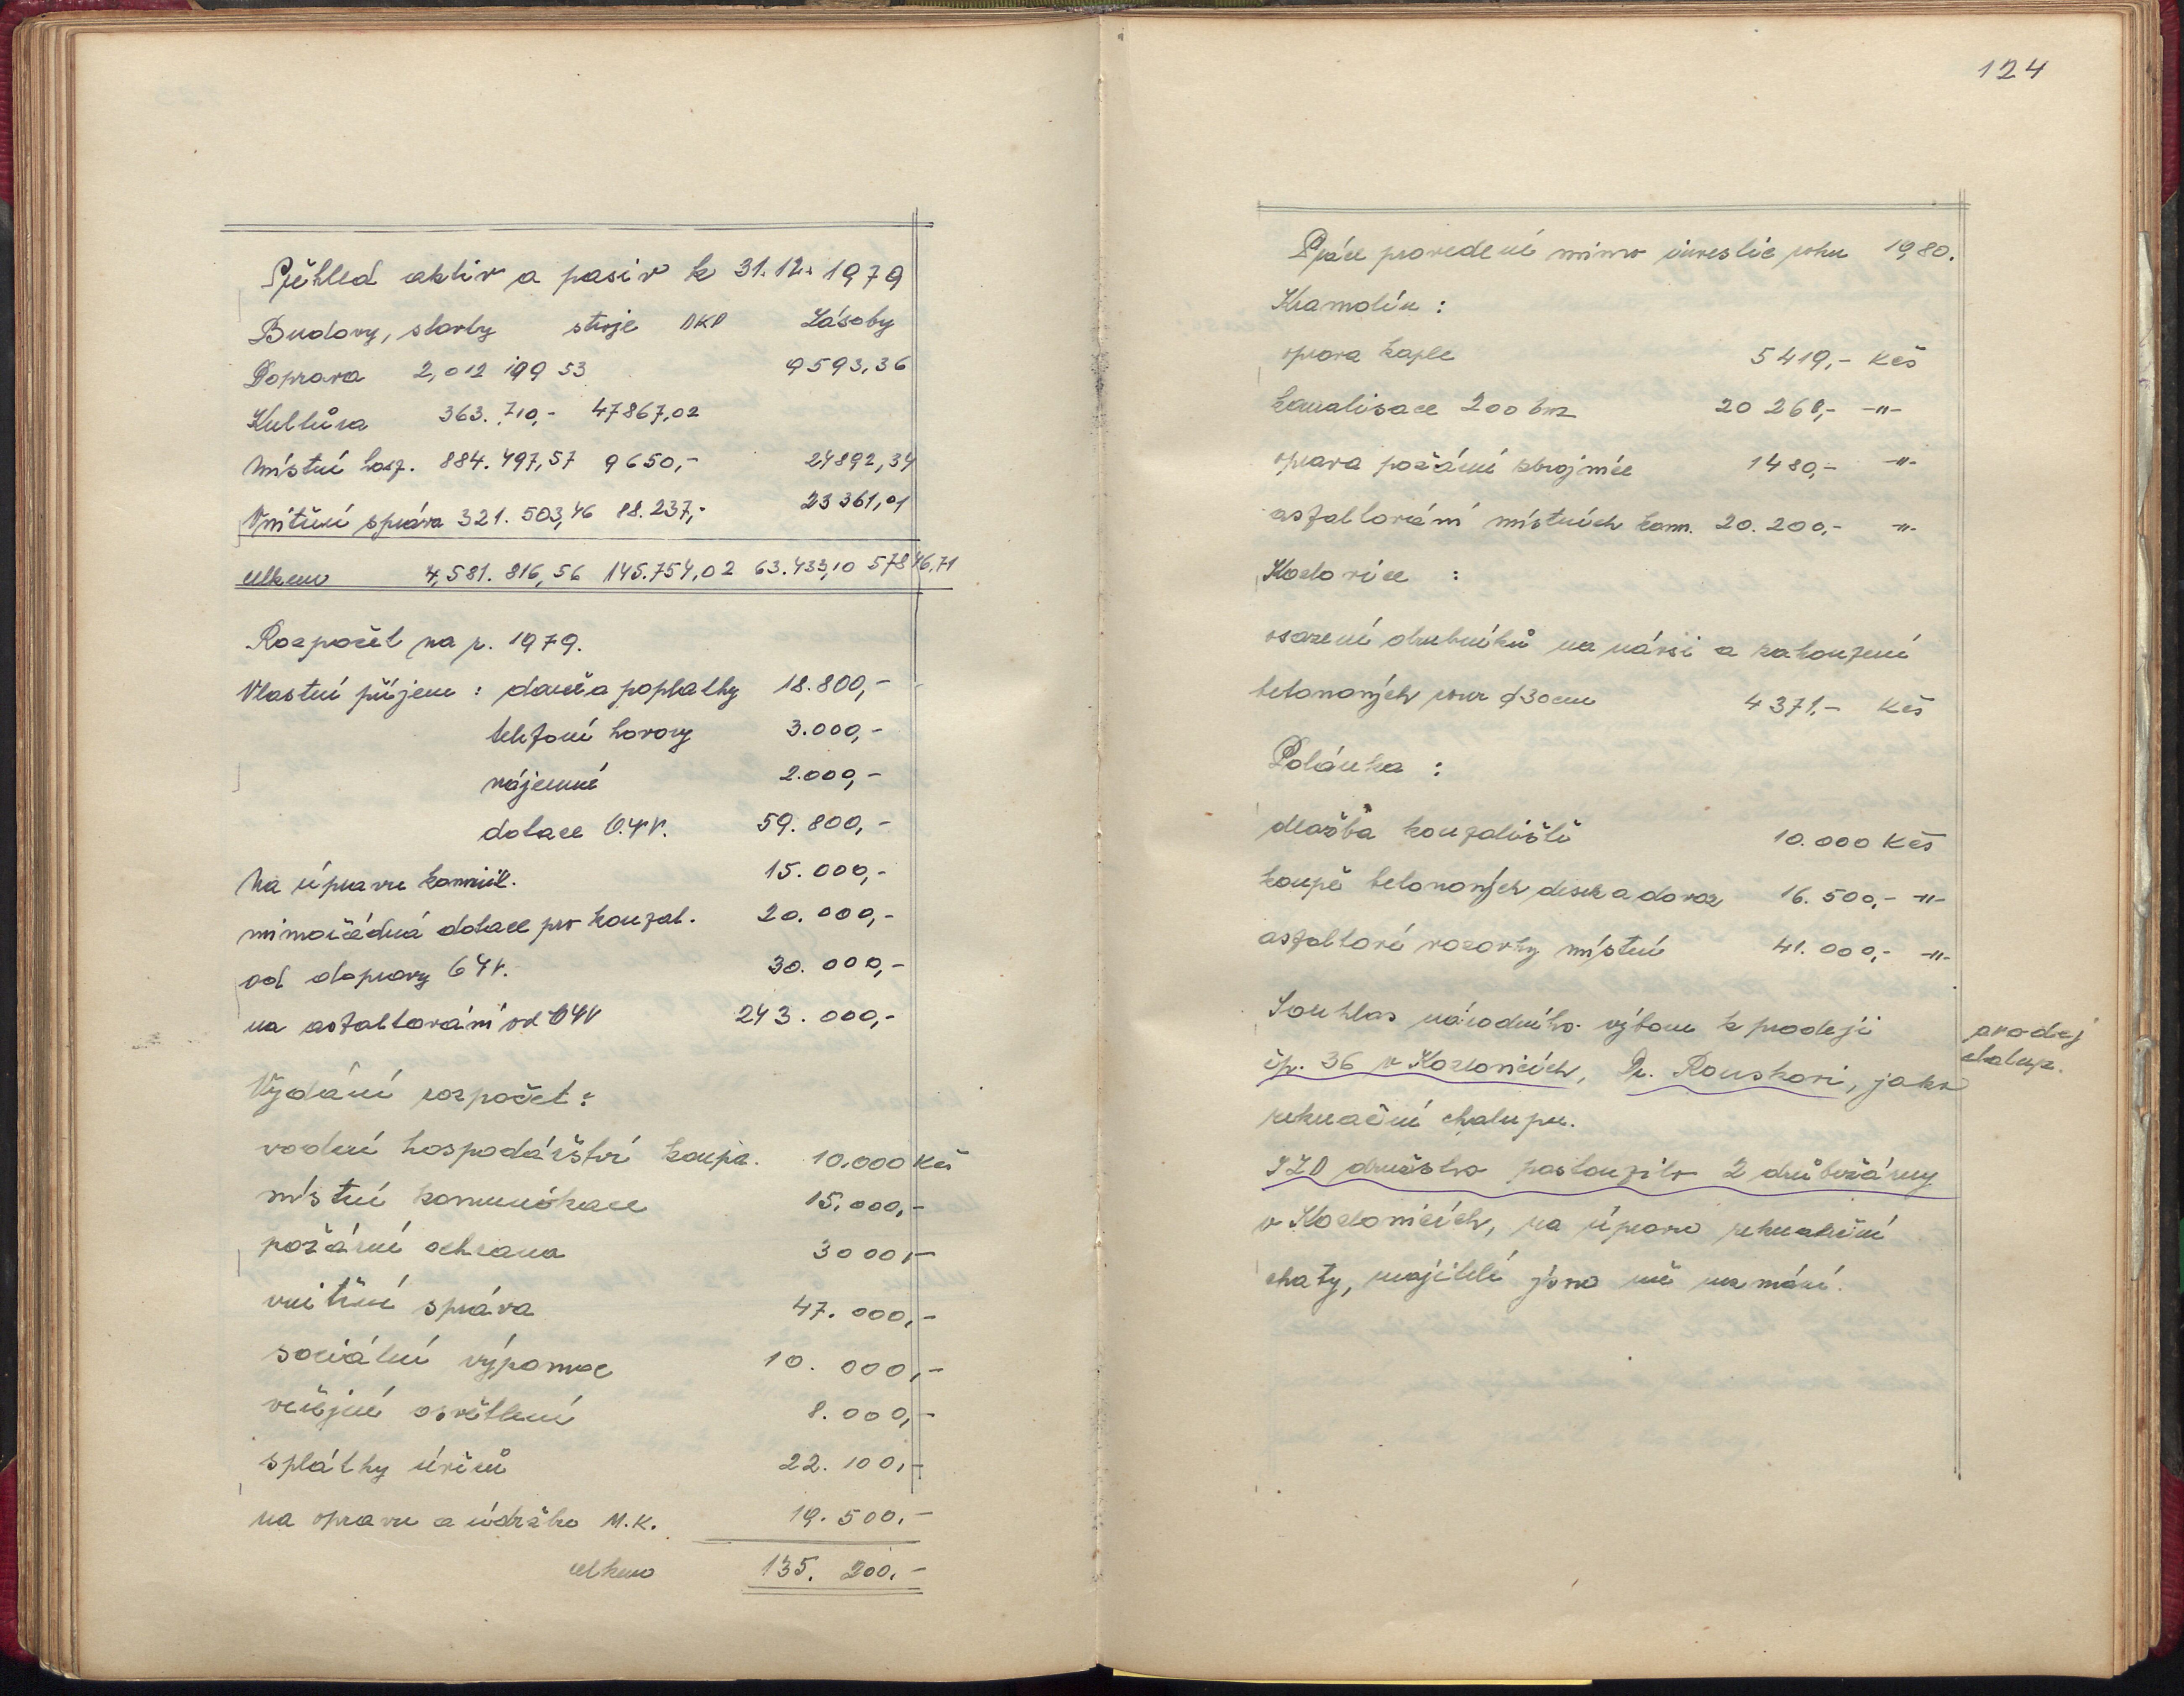 Přehled aktiv a pasiv k 31.12. 1979
Budovy, stavby stroje DKP Zásoby
Doprava 2,012 199 53 9593,36
Kultůra 363. 710,- 47867,02
Místní hosp. 884. 497,57 9650,- 24892,34
Vnitřní správa 321. 503,46 88.237,- 23361,01
celkem 4,581. 816,56 145.754,02 63.433,10 57846,71
Rozpočet na r. 1979.
Vlastní příjem : daně a poplatky 18.800,-
telefoní hovory 3.000,-
nájemné 2.000,-
dotace ONV. 59. 800,-
Na úpravu komunik. 15. 000,-
mimořádná dotace pro koupal. 20. 000,-
od dopravy ONV. 30. 000,-
na asfaltování od ONV 243. 000,-
Vydání rozpočet :
vodní hospodářství koupa. 10.000 Kčs
místní komunikace 15.000,-
požární ochrana 3000,-
vnitřní správa 47. 000,-
sociální výpomoc 10. 000,-
veřejné osvětlení 8. 000,-
splátky úvěrů 22. 100,-
na opravu a údržbu M.K. 19. 500.-
celkem 135. 200.-
124
Práce provedené mimo investic roku 1980.
Kramolín :
oprava kaple 5419,- Kčs
kanalisace 200 bm 20 268,- -"-
oprava požární zbrojnice 1480,- -"-
asfaltování místních kom. 20. 200,- -"-
Kozlovice :
osazení obrubníků na návsi a zakoupení
betonových rour ø 30cm 4371.- Kčs
Polánka :
dlažba koupaliště 10.000 Kčs
koupě betonových desek a dovoz 16. 500,- -"-
asfaltové vozovky místní 41. 000,- -"-
Souhlas národního výboru k prodeji
čp. 36 v Kozlovicích, Dr. Rouskovi, jako
rekreační chalupu.
prodej
chalup.
JZD družstvo postoupilo 2 drůbežárny
v Kozlovicích, na úpravu rekreační
chaty, majitelé jsou mě na mání.